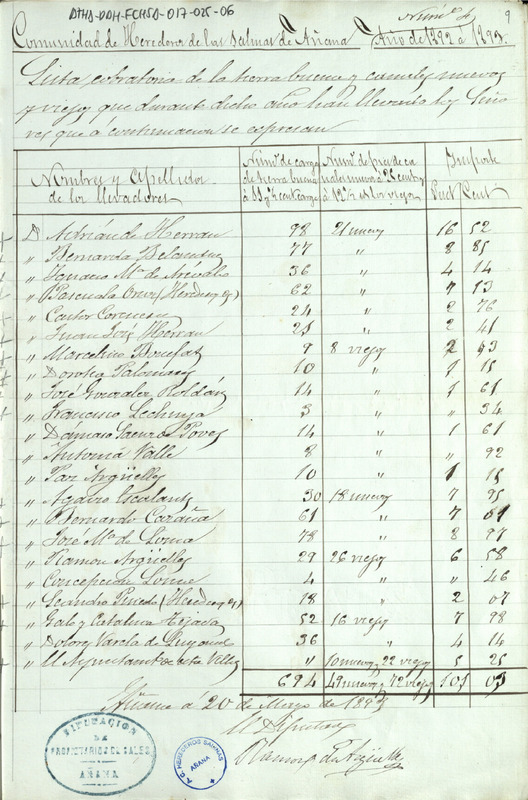 ATHA-DAH-FCHSA-017-025-06
Núm.º 4 9
Comunidad de Herederos de las Salinas de Añana Año de 1892 á 1893
Lista cobratoria de la tierra buena y canales nuevos
y viejos que durante dicho año han llevado los Seño
res que á continuacion se espresan
Nombres y Apellidos de los llevadores Núm.º de cargas de tierra buena Núm.º de pies de ca nales nuevos á 25 cent.s á 12½ id los viejos Importe Pset Cent
Dn Adrián de Herran 98 21 nuevos 16 52
" Bernarda 77 " 8 85
" Ignacio Mª de Arévalo 36 " 4 14
" Pascuala (Herederos) 62 " 7 13
" Castor 24 " 2 76
" Juan José Herran 21 " 2 41
" Marcelino 9 8 viejos 2 03
" Dorotea Palomares 10 " 1 15
" José Gonzalez Roldán 14 " 1 61
" Francisco 3 " " 34
" Dámaso Saenz Poves 14 " 1 61
" Antonia Valle 8 " " 92
" Paz Argüelles 10 " 1 15
" Agapito Escalante 30 18 nuevos 7 95
" Bernardo 61 " 7 01
" José Mª de 78 " 8 97
" Ramon Argüelles 29 26 viejos 6 58
" Concepcion 4 " " 46
" Leandro Pinedo (Herederos) 18 " 2 07
" Galo y Catalina Tejada 52 16 viejos 7 98
" Dolores Varela de 36 " 4 14
" El Ayuntamto de esta Villa " 10 nuevos, 22 viejos 5 25
694 49 nuevos, 72 viejos 101 03
Añana á 20 de Marzo de 1893
El Diputado
Ramon de Argüelles
DIPUTACION
DE
PROPIETARIOS DE SALES
AÑANA
A.C. HEREDEROS SALINAS
AÑANA